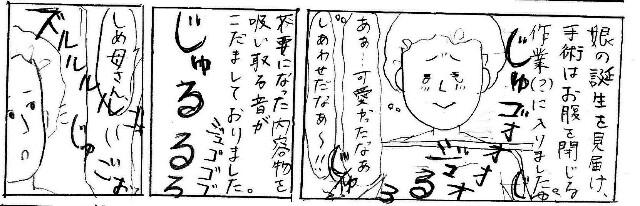 娘の誕生を見届け、
手術はお腹を閉じる
作業(?)に入りました。
じゅゴオオオオ
ジュオ
じゅるる
じ
ああ…可愛かったなぁ
しあわせだなぁ〜!!
不要になった内容物を
吸い取る音が
こだましておりました。
じゅるるるる
ジュゴゴゴ
しめ母さん
ズルルルル
じゅごぉ